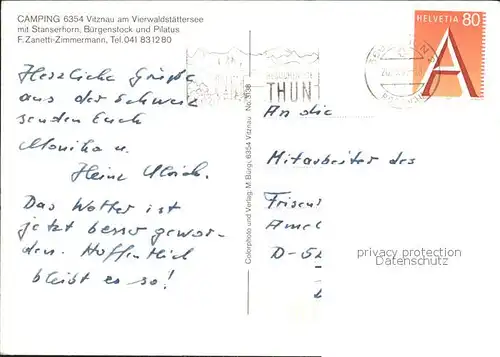 CAMPING 6354 Vitznau am Vierwaldstättersee
mit Stanserhorn, Bürgenstock und Pilatus
F. Zanetti-Zimmermann, Tel. 041 831280
Herzliche Grüße
aus der Schweiz
senden Euch
Monika u.
Heinz Ulrich.
Das Wetter ist
jetzt besser gewor-
den. Hoffentlich
bleibt es so!
Colorphoto und Verlag, M. Bürgi, 6354 Vitznau No. 3138
THUN
HELVETIA 80
A
An die
Mitarbeiter des
Friseur
Amel
D-52
privacy protection
Datenschutz